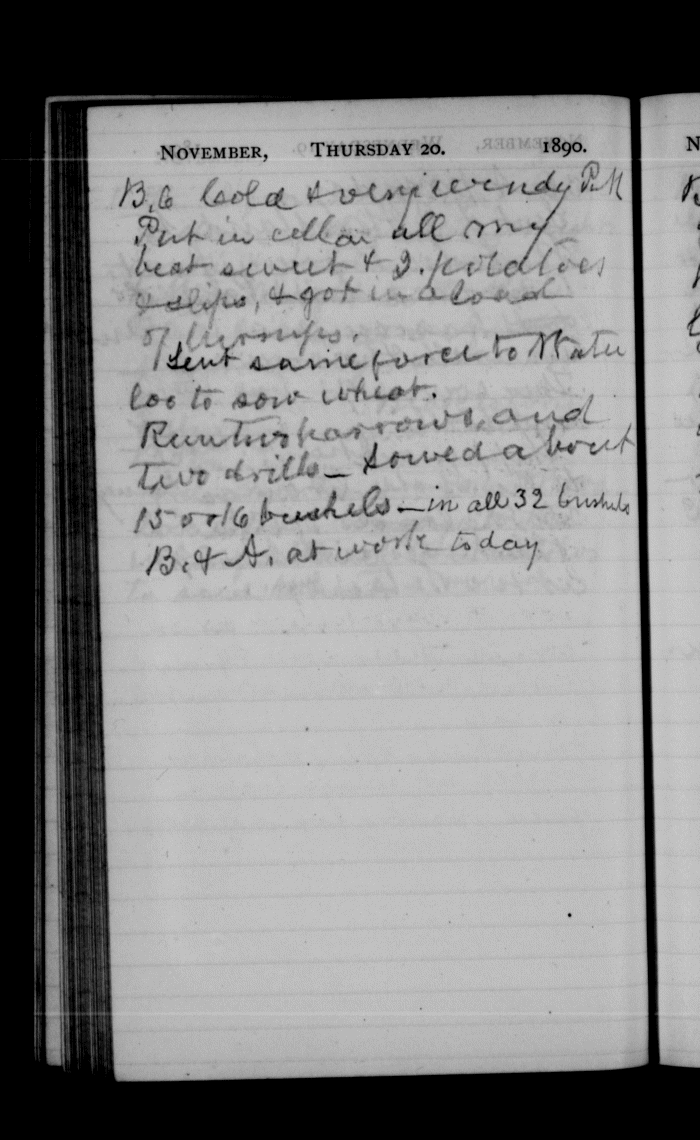 NOVEMBER, THURSDAY 20. 1890.
B. 6 Cold & very windy P.M
Put in cellar all my
best sweet & I. potatoes
& slips, & got in a load
of turnips.
Sent same force to Water
loo to sow wheat.
Run two harrows, and
two drills — Sowed about
15 or 16 bushels — in all 32 bushels
B. & A. at work today